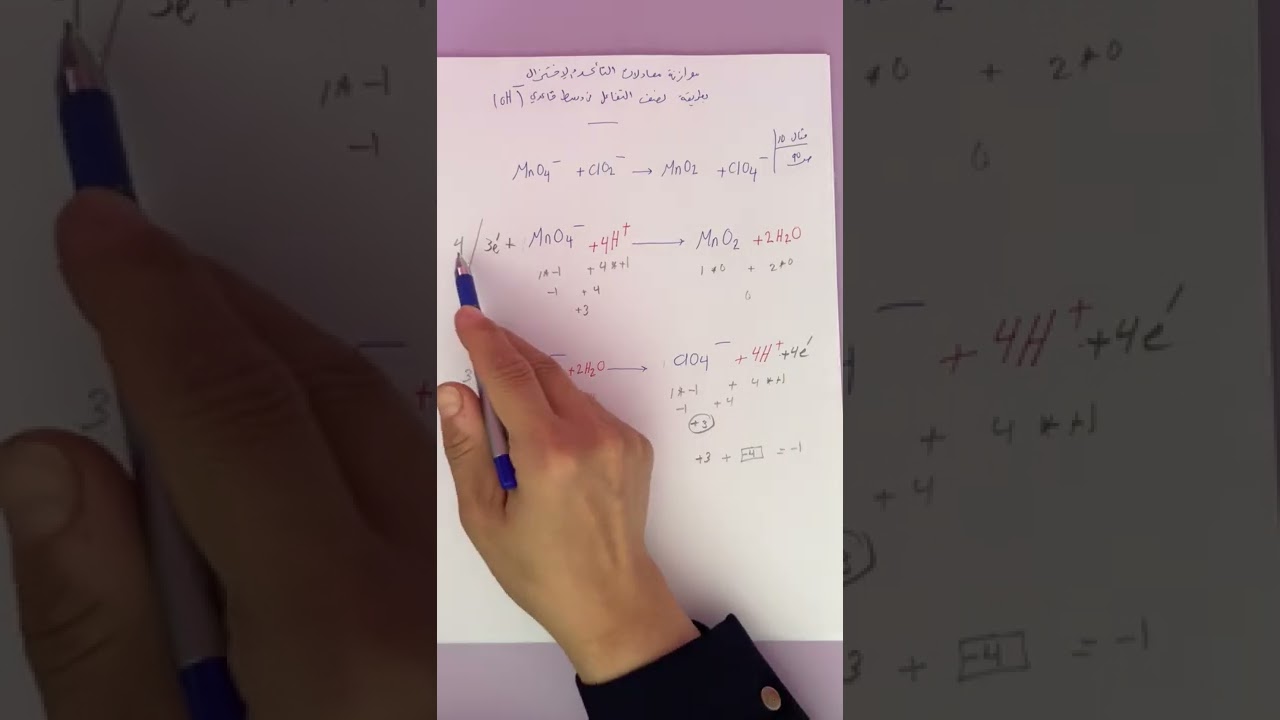 موازنة معادلات التأكسد والاختزال
بطريقة نصف التفاعل في وسط قاعدي (OH⁻)
MnO4⁻ + ClO2⁻ → MnO2 + ClO4⁻ مثال 10
4 / 3e⁻ + MnO4⁻ + 4H⁺ → MnO2 + 2H2O
1*-1 + 4*+1 1*0 + 2*0
-1 + 4 0
+3
3 ⁻ + 2H2O → ClO4⁻ + 4H⁺ + 4e⁻
1*-1 + 4*+1
-1 + 4
+3
+3 + -4 = -1